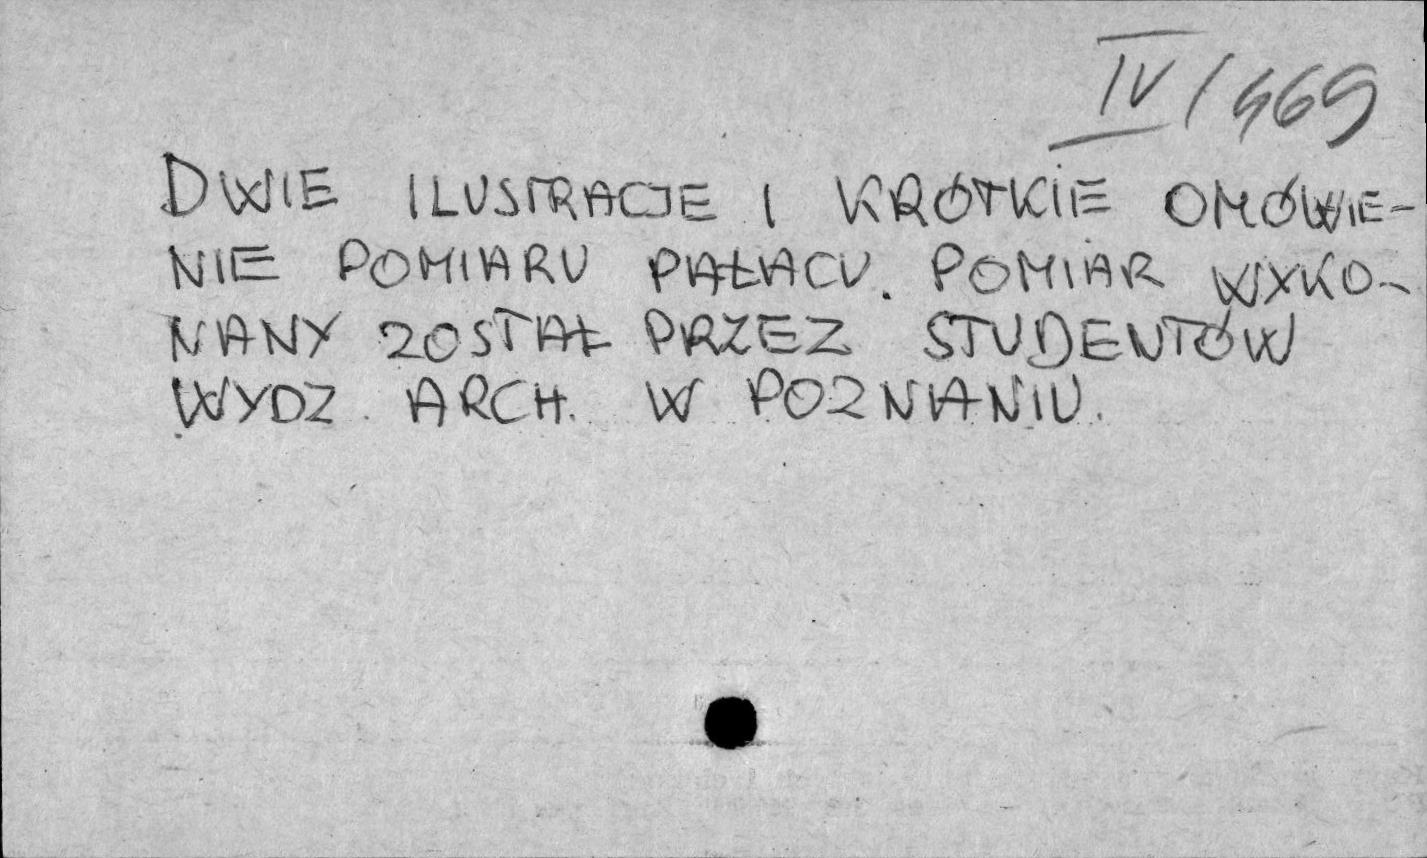 IV/469
DWIE ILUSTRACJE I KRÓTKIE OMÓWIE-
NIE POMIARU PAŁACU. POMIAR WYKO-
NANY ZOSTAŁ PRZEZ STUDENTÓW
WYDZ. ARCH. W POZNANIU.